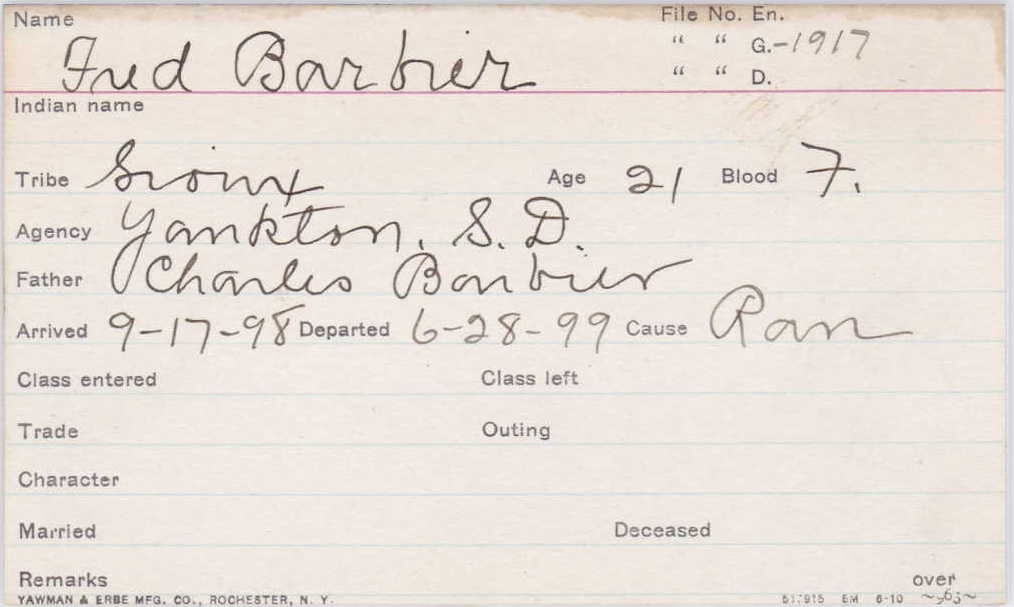 Name File No. En.
Fred Barbier “ “ G.-1917
“ “ D.
Indian name
Tribe Sioux Age 21 Blood F.
Agency Yankton, S. D.
Father Charles Barbier
Arrived 9-17-98 Departed 6-28-99 Cause Ran
Class entered Class left
Trade Outing
Character
Married Deceased
Remarks over
YAWMAN & ERBE MFG. CO., ROCHESTER, N. Y. 6-10